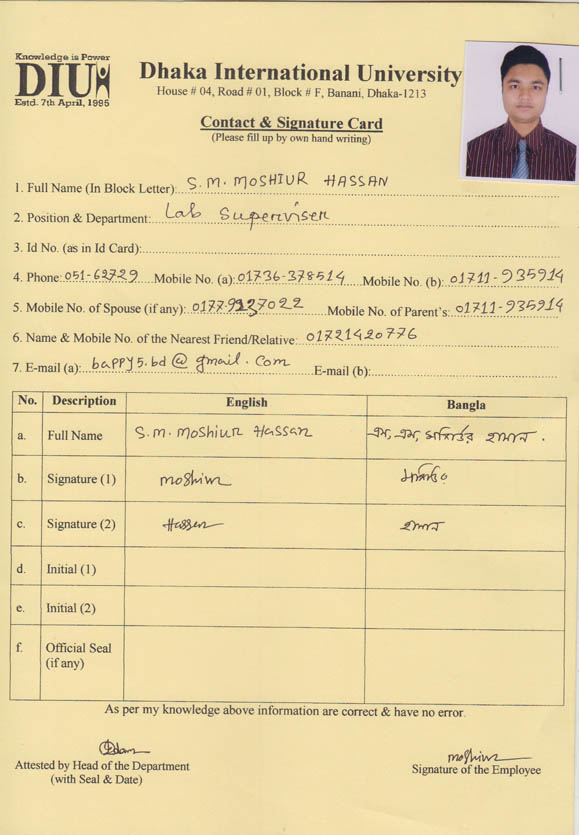 Knowledge is Power
DIU
Estd. 7th April, 1995
Dhaka International University
House # 04, Road # 01, Block # F, Banani, Dhaka-1213
Contact & Signature Card
(Please fill up by own hand writing)
1. Full Name (In Block Letter): S.M. MOSHIUR HASSAN
2. Position & Department: Lab Superviser
3. Id No. (as in Id Card):
4. Phone: 051-62729 Mobile No. (a): 01736-378514 Mobile No. (b): 01711-935914
5. Mobile No. of Spouse (if any): Mobile No. of Parent's: 01711-935914
6. Name & Mobile No. of the Nearest Friend/Relative: 01721420776
7. E-mail (a): bappy5.bd@gmail.com E-mail (b):
No. Description English Bangla
a. Full Name S.M. Moshiur Hassan এস, এম, মশিউর হাসান.
b. Signature (1) moshiur মশিউর
c. Signature (2) Hassan হাসান
d. Initial (1)
e. Initial (2)
f. Official Seal
(if any)
As per my knowledge above information are correct & have no error.
moshiur
Attested by Head of the Department Signature of the Employee
(with Seal & Date)